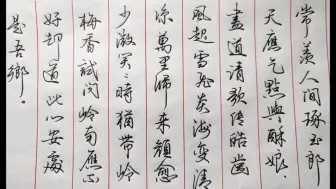 常羨人間琢玉郎
天應乞點與酥娘
盡道清歌傳皓齒
風起雪飛炎海變清
涼萬里歸來顏愈
少微笑々時猶帶嶺
梅香試問嶺南應不
好却道此心安處
是吾鄉。